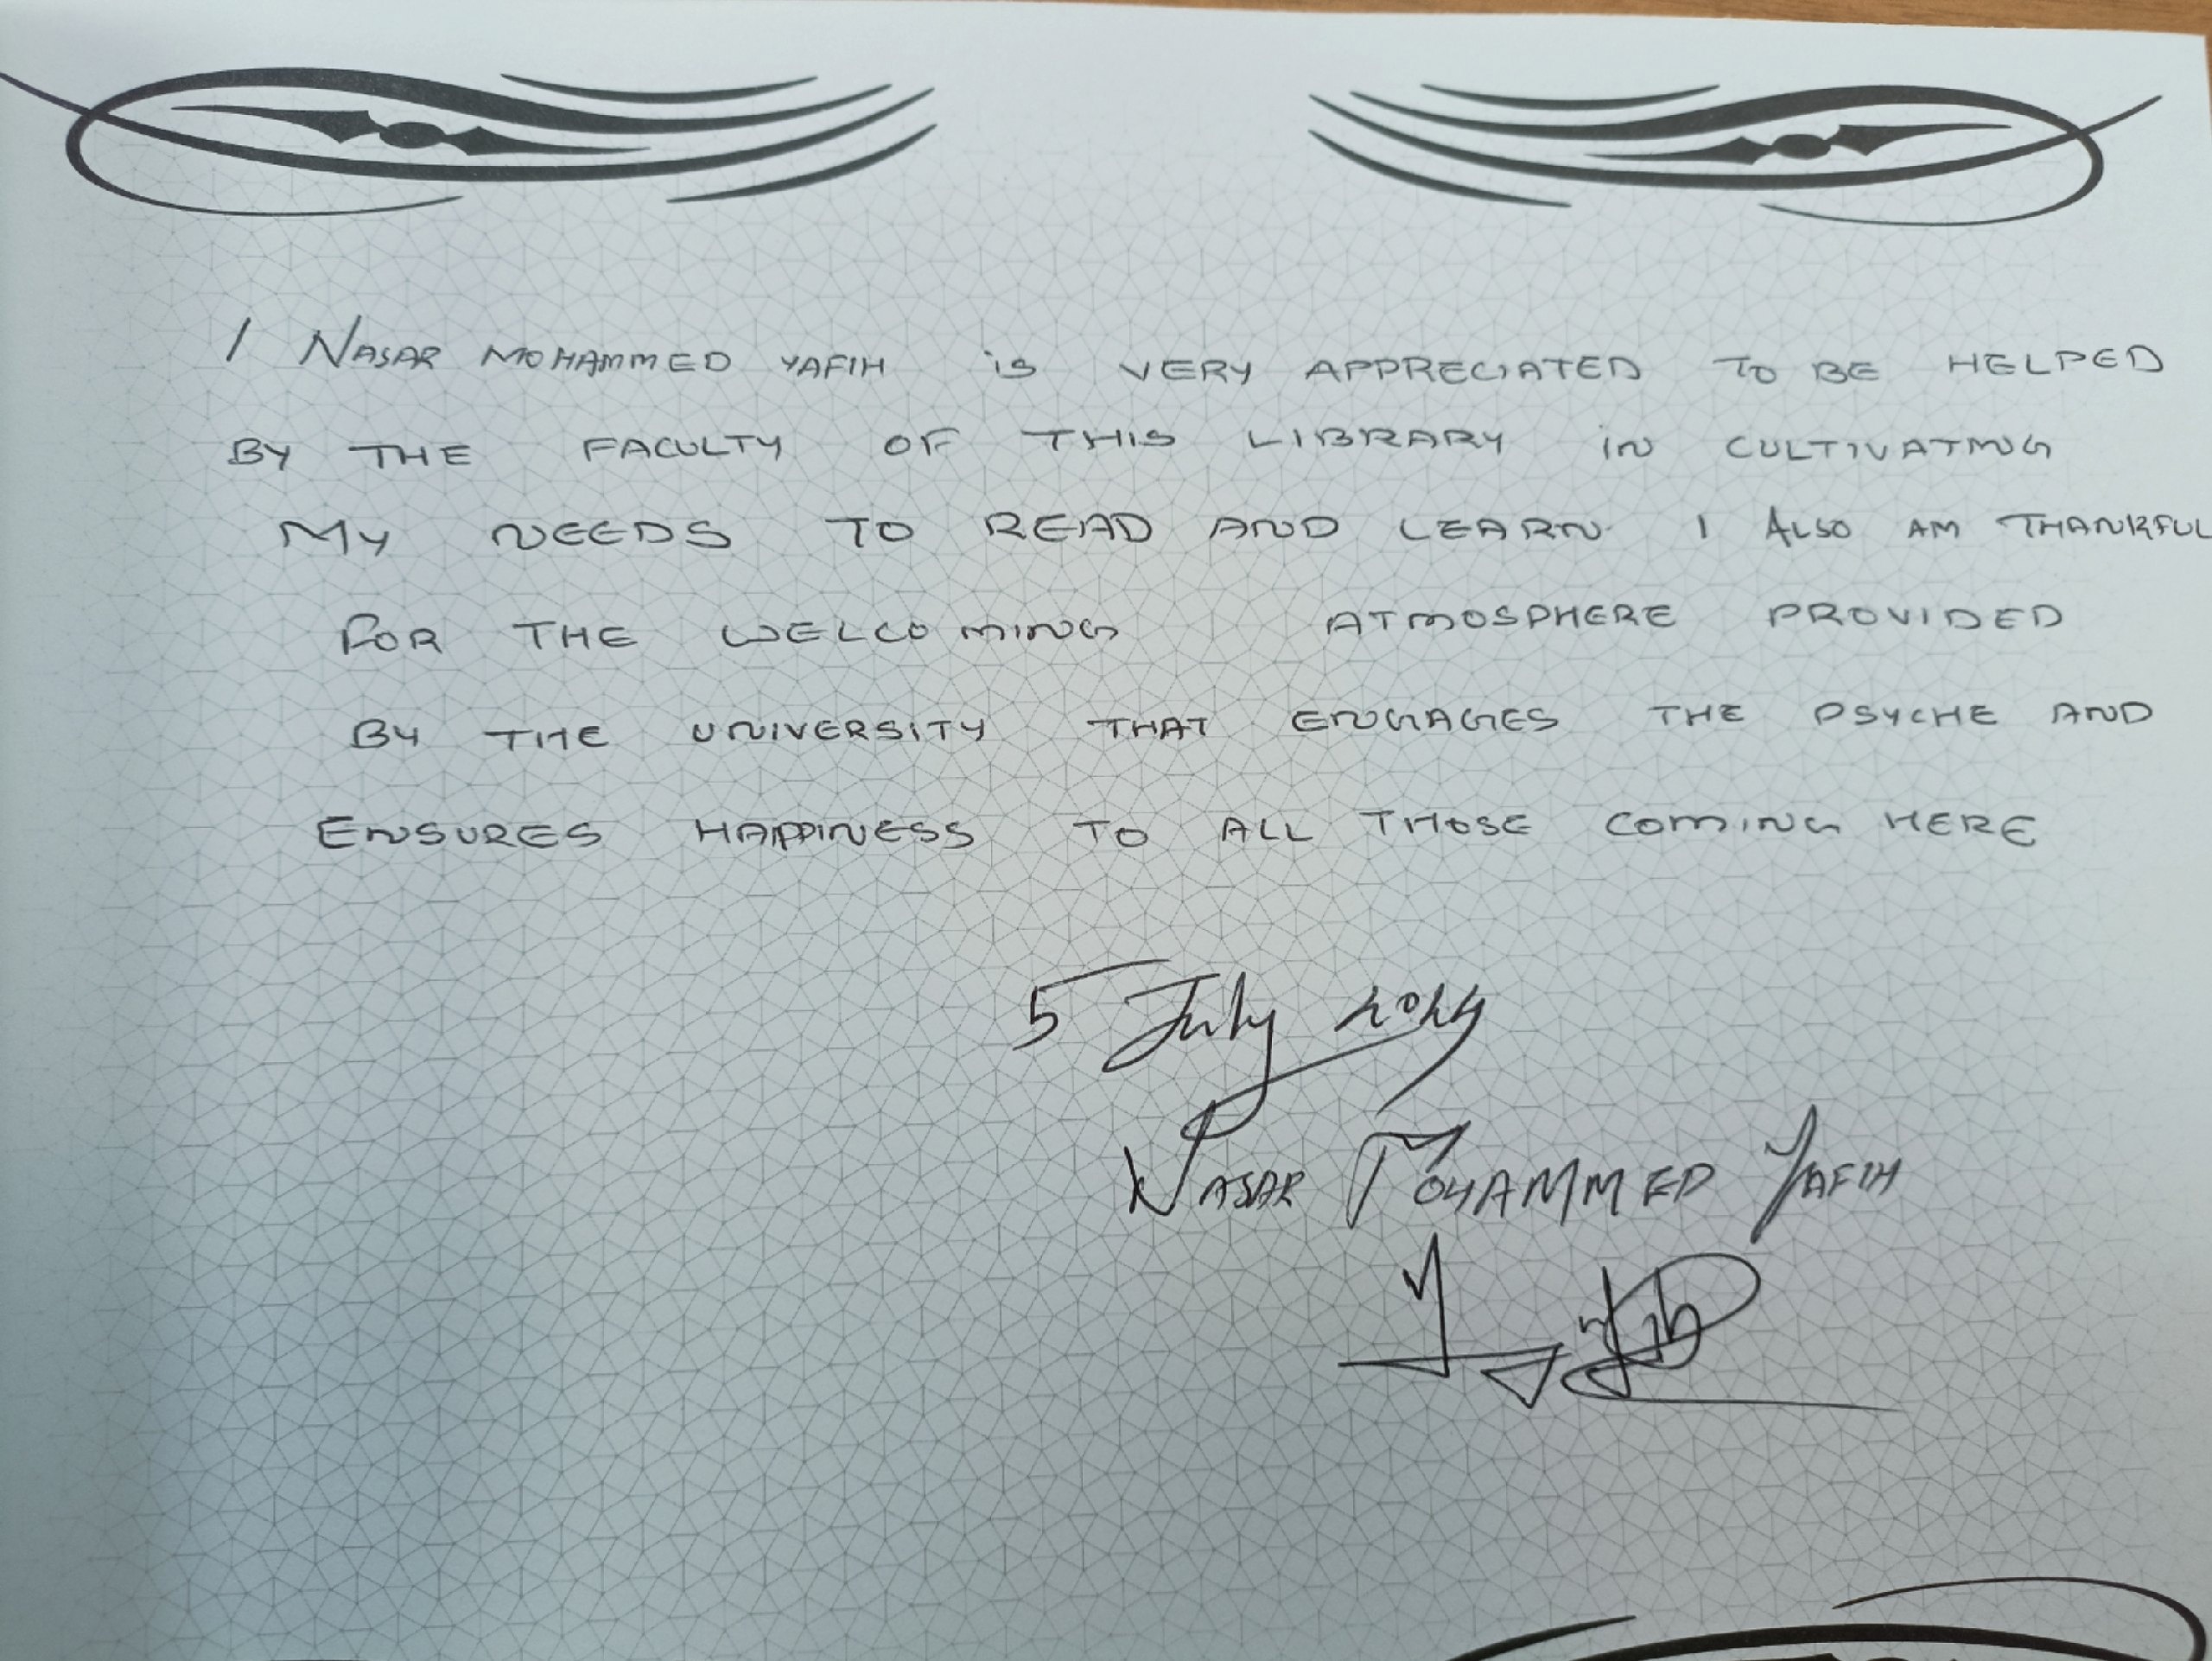 I NASAR MOHAMMED YAFIH is VERY APPRECIATED TO BE HELPED
BY THE FACULTY OF THIS LIBRARY iN CULTIVATING
MY NEEDS TO READ AND LEARN. I ALSO AM THANKFUL
FOR THE WELCOMING ATMOSPHERE PROVIDED
BY THE UNIVERSITY THAT ENGAGES THE PSYCHE AND
ENSURES HAPPINESS TO ALL THOSE COMING HERE
5 July 2024
NASAR MOHAMMED YAFIH